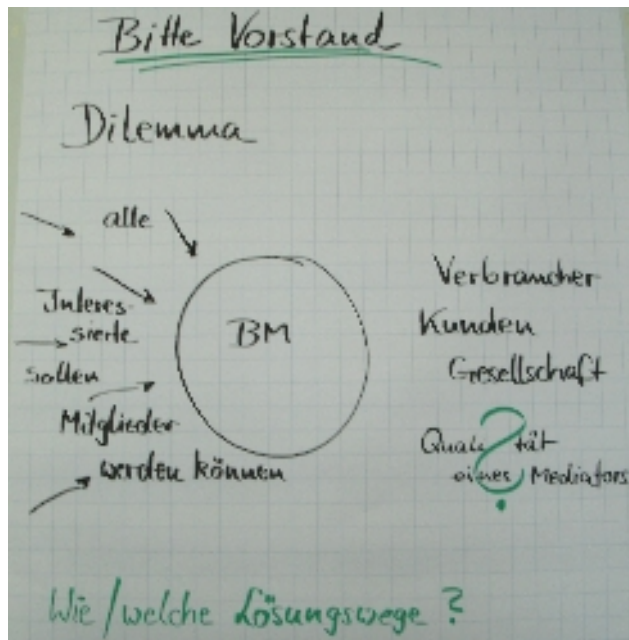 Bitte Vorstand
Dilemma
alle
Interes-
sierte
sollen
Mitglieder
werden können
BM
Verbraucher
Kunden
Gesellschaft
Qualität
eines Mediators
?
Wie/welche Lösungswege?